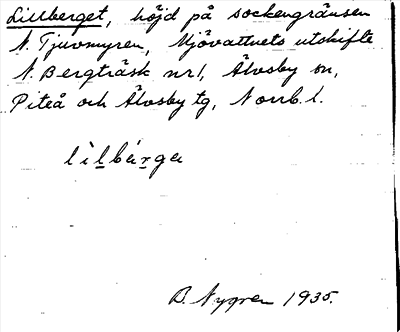 Lillberget, höjd på sockengränsen
N. Tjuvmyren, Mjövattnets utskifte
N. Bergträsk nr 1, Älvsby sn,
Piteå och Älvsby tg, Norrb. l.
lìlbárga
B. Nygren 1935.